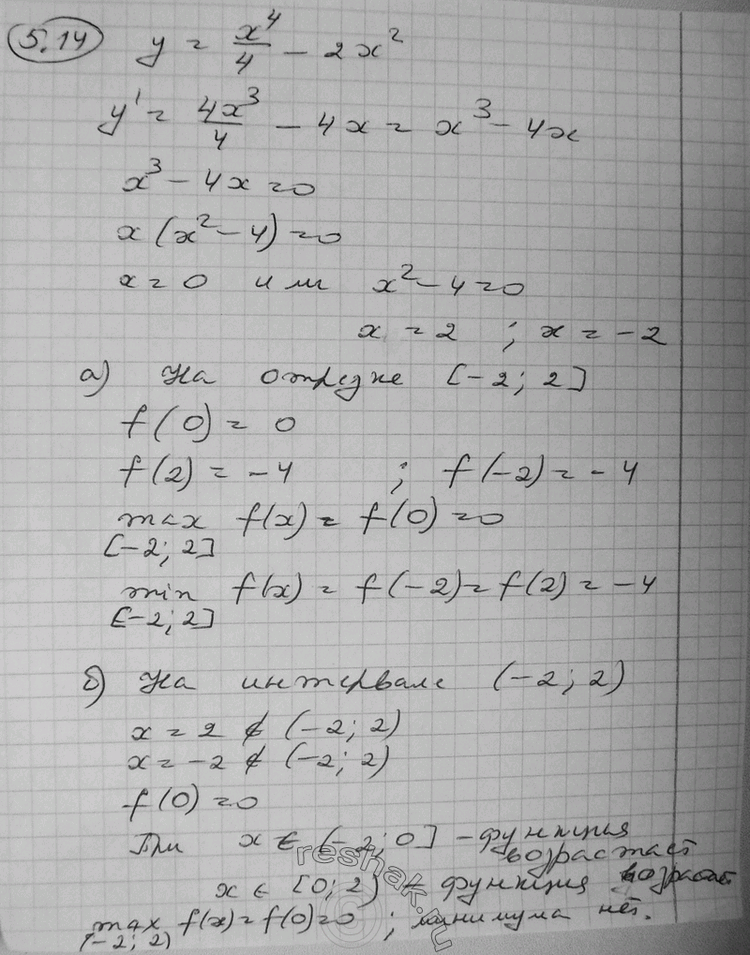 5.14 y = x⁴/4 - 2x²
y' = 4x³/4 - 4x = x³ - 4x
x³ - 4x = 0
x(x² - 4) = 0
x = 0 или x² - 4 = 0
x = 2 ; x = -2
а) На отрезке [-2; 2]
f(0) = 0
f(2) = -4 ; f(-2) = -4
max f(x) = f(0) = 0
[-2; 2]
min f(x) = f(-2) = f(2) = -4
[-2; 2]
б) На интервале (-2; 2)
x = 2 ∉ (-2; 2)
x = -2 ∉ (-2; 2)
f(0) = 0
При x ∈ (-2; 0] - функция
возрастает
x ∈ [0; 2) - функция возрастает
max f(x) = f(0) = 0 ; минимума нет.
(-2; 2)
reshak.ru